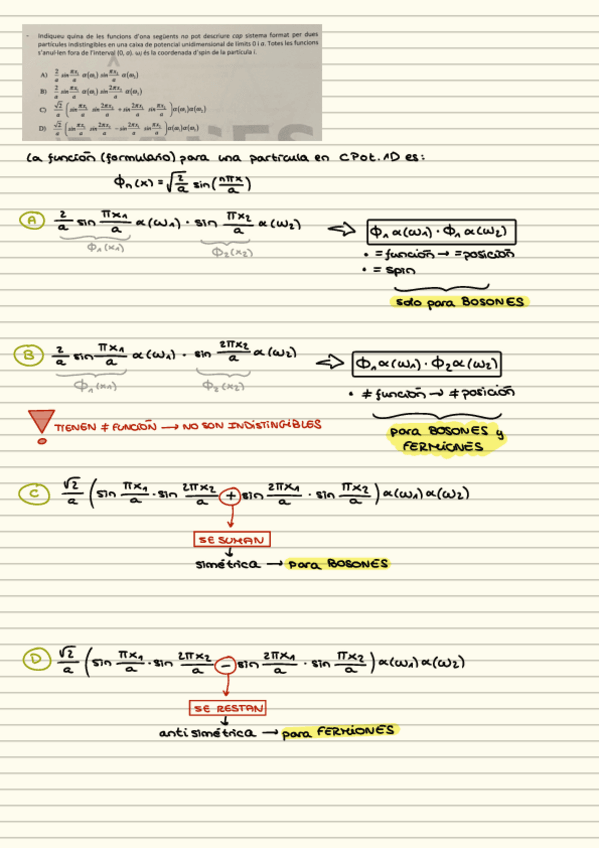 Indiqueu quina de les funcions d'ona següents no pot descriure cap sistema format per dues
partícules indistingibles en una caixa de potencial unidimensional de límits 0 i a. Totes les funcions
s'anul·len fora de l'interval (0, a). ωi és la coordenada d'spin de la partícula i.
A) 2/a sin πx₁/a α(ω₁) sin πx₂/a α(ω₂)
B) 2/a sin πx₁/a α(ω₁) sin 2πx₂/a α(ω₂)
C) √2/a (sin πx₁/a sin 2πx₂/a + sin 2πx₁/a sin πx₂/a) α(ω₁)α(ω₂)
D) √2/a (sin πx₁/a sin 2πx₂/a − sin 2πx₁/a sin πx₂/a) α(ω₁)α(ω₂)
La función (formulario) para una partícula en CPot. 1D es:
ϕn(x) = √2/a sin(nπx/a)
A 2/a sin πx₁/a α(ω₁) · sin πx₂/a α(ω₂) ⇨ ϕ₁α(ω₁) · ϕ₁α(ω₂)
ϕ₁(x₁) ϕ₂(x₂)
• = función → = posición
• = spin
solo para BOSONES
B 2/a sin πx₁/a α(ω₁) · sin 2πx₂/a α(ω₂) ⇨ ϕ₁α(ω₁) · ϕ₂α(ω₂)
ϕ₁(x₁) ϕ₂(x₂)
• ≠ función → ≠ posición
TIENEN ≠ FUNCIÓN → NO SON INDISTINGIBLES
para BOSONES y
FERMIONES
C √2/a (sin πx₁/a · sin 2πx₂/a + sin 2πx₁/a · sin πx₂/a) α(ω₁)α(ω₂)
SE SUMAN
simétrica → para BOSONES
D √2/a (sin πx₁/a · sin 2πx₂/a − sin 2πx₁/a · sin πx₂/a) α(ω₁)α(ω₂)
SE RESTAN
antisimétrica → para FERMIONES